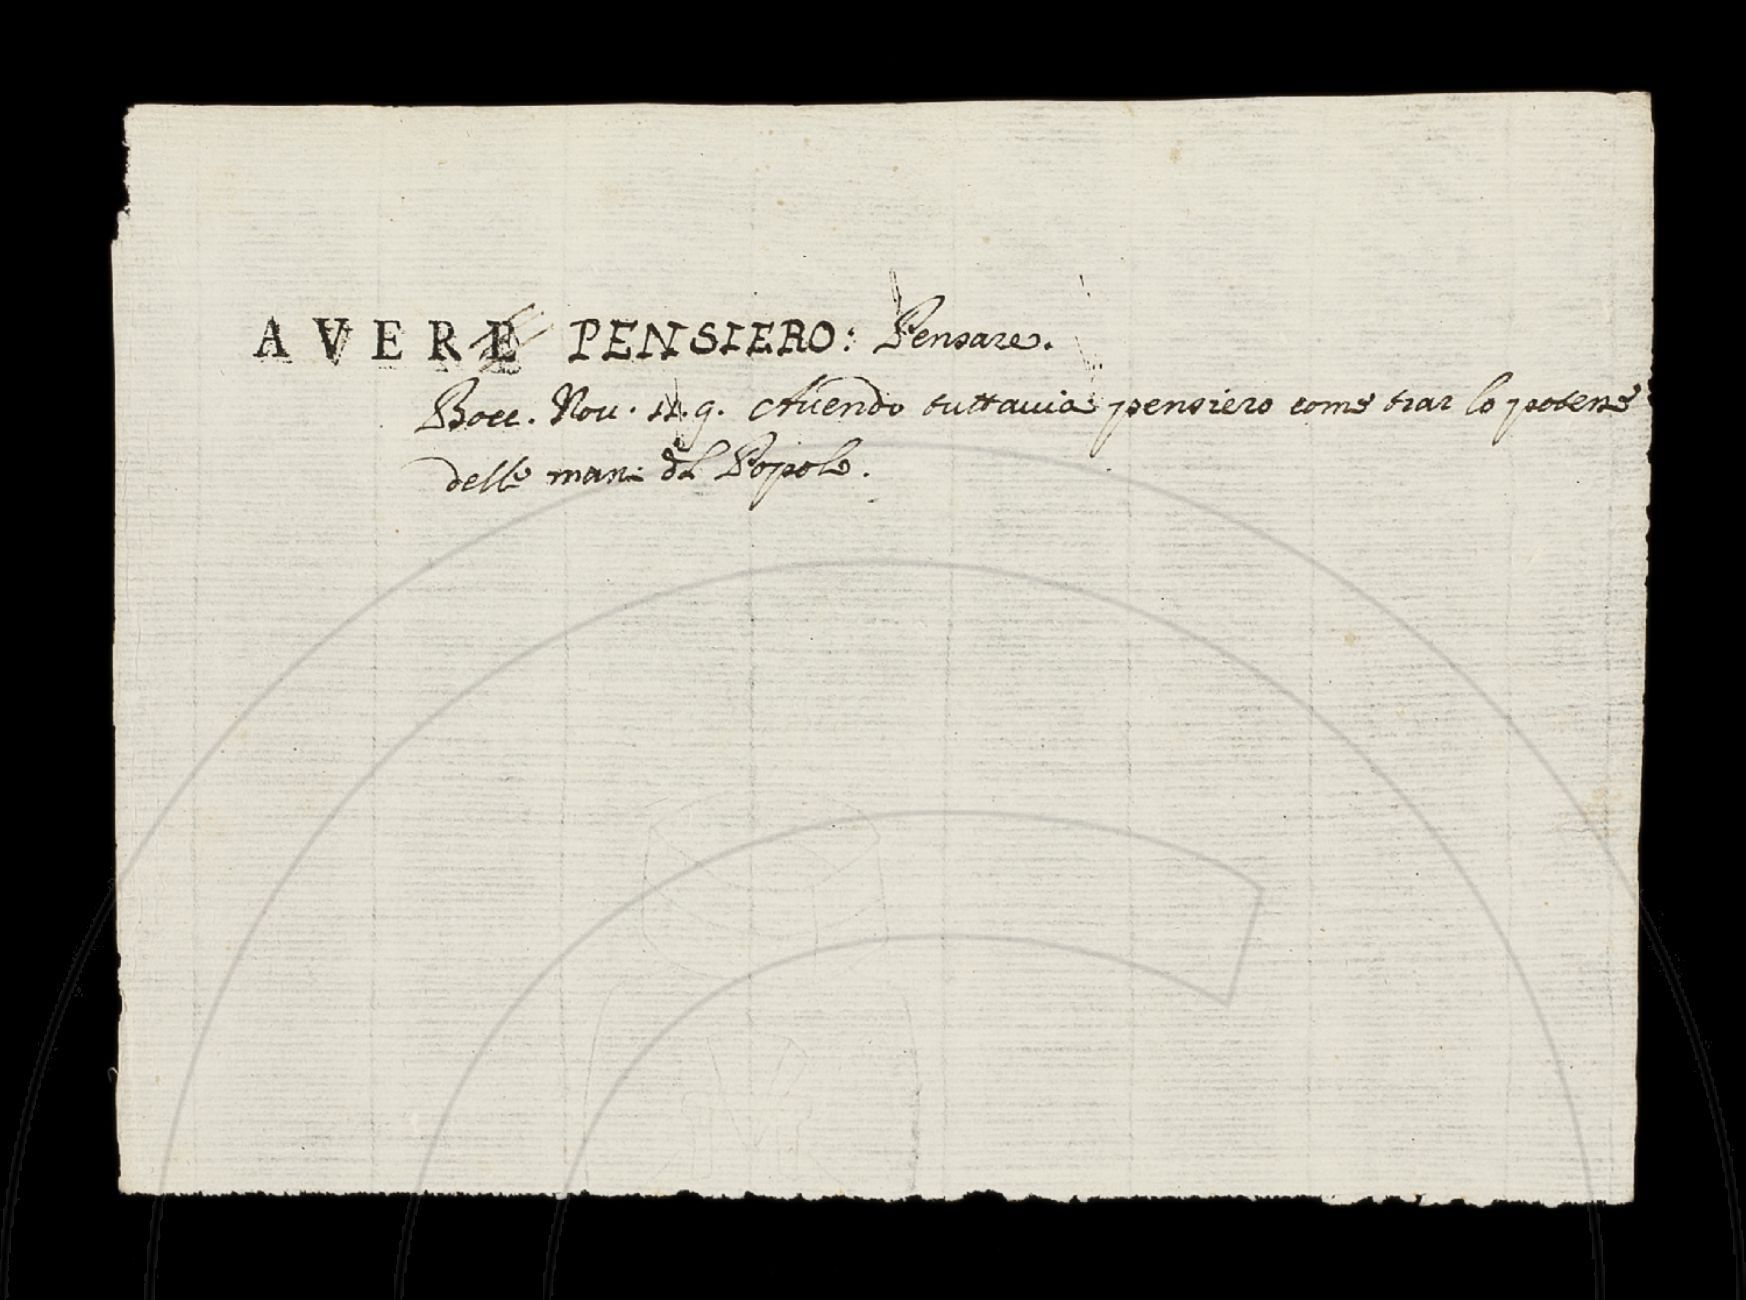 AVERE PENSIERO: Pensare.
Bocc. Nov. 11.9. Avendo tuttavia pensiero come trar lo potesse
delle mani del Popolo.